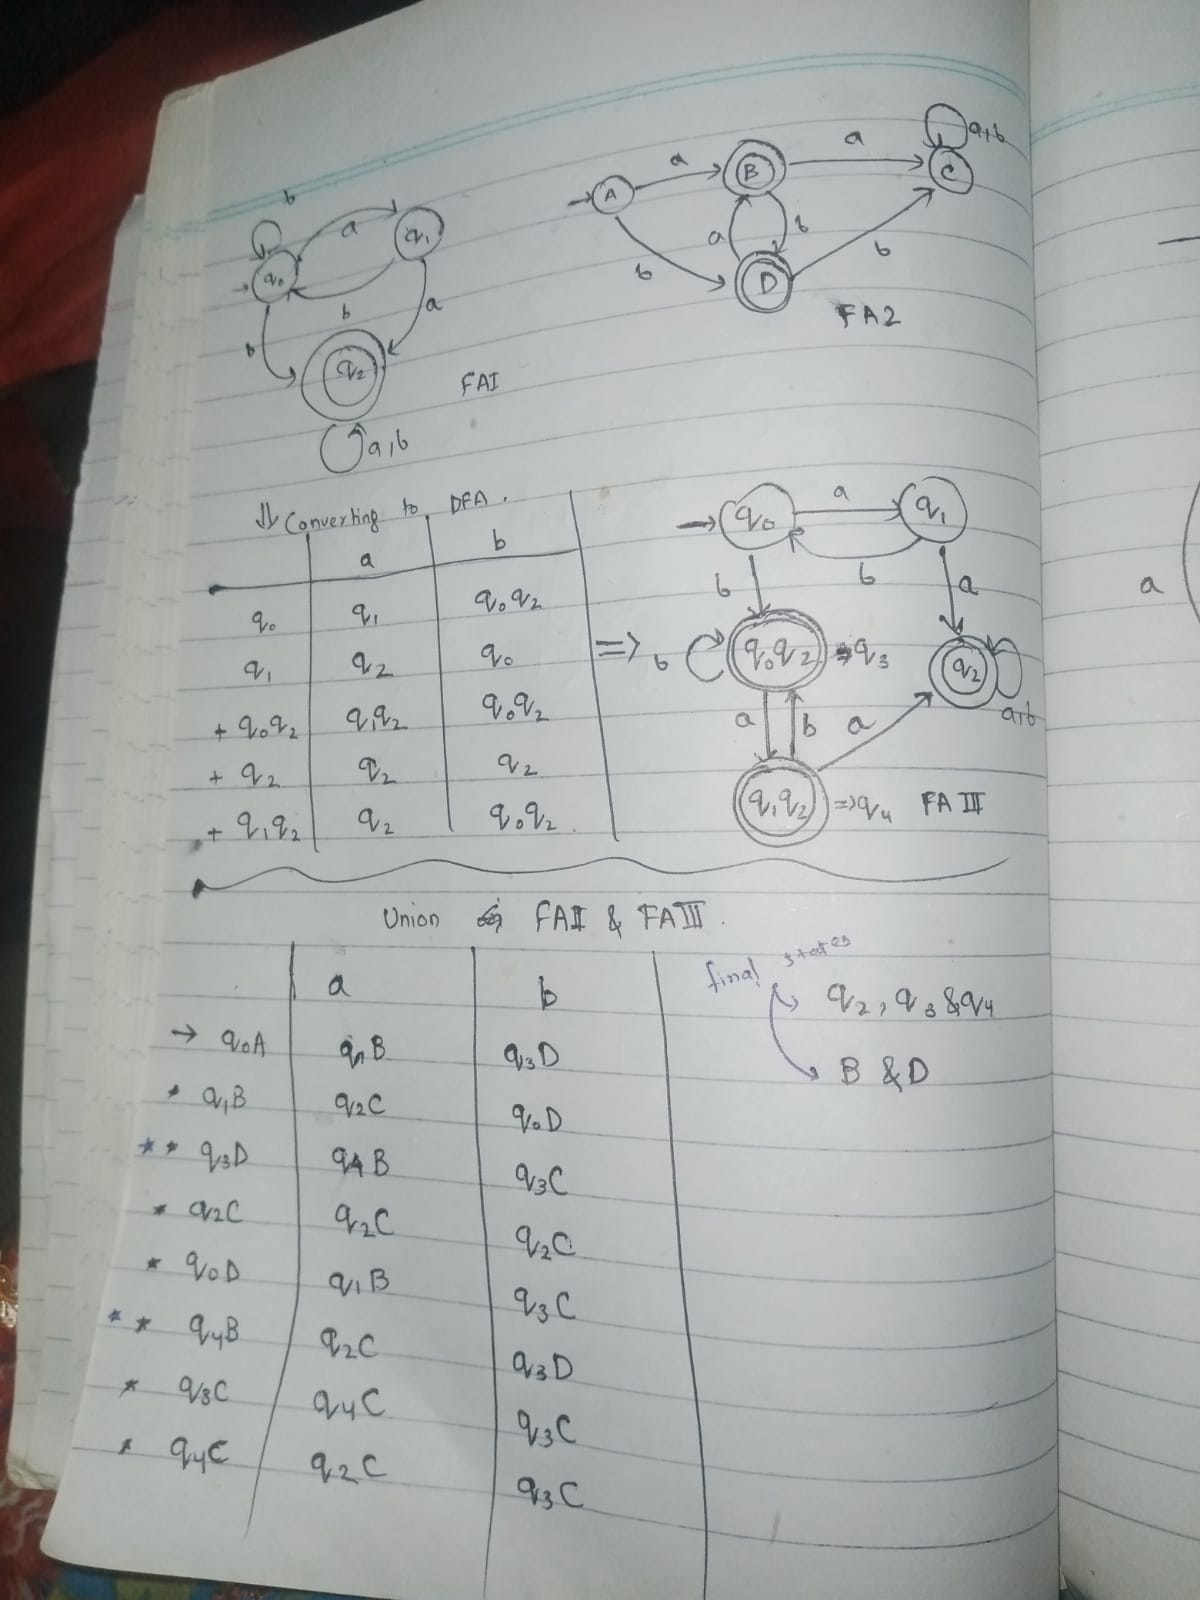 b
a
q₀
q₁
b
a
b
q₂
a,b
FAI
A
a
B
a
C
a,b
b
a
b
D
b
FA2
⇓ Converting to DFA.
a b
q₀ q₁ q₀q₂
q₁ q₂ q₀
+ q₀q₂ q₁q₂ q₀q₂
+ q₂ q₂ q₂
+ q₁q₂ q₂ q₀q₂
=>
q₀
a
q₁
b
b
a
b
q₀q₂ => q₃
q₂
a,b
a
b
a
q₁q₂ => q₄
FA III
Union FAII & FAIII.
a b
→ q₀A q₁B q₃D
* q₁B q₂C q₀D
* * q₃D q₄B q₃C
* q₂C q₂C q₂C
* q₀D q₁B q₃C
* * q₄B q₂C q₃D
* q₃C q₄C q₃C
* q₄C q₂C q₃C
final states
q₂, q₃ & q₄
B & D
a